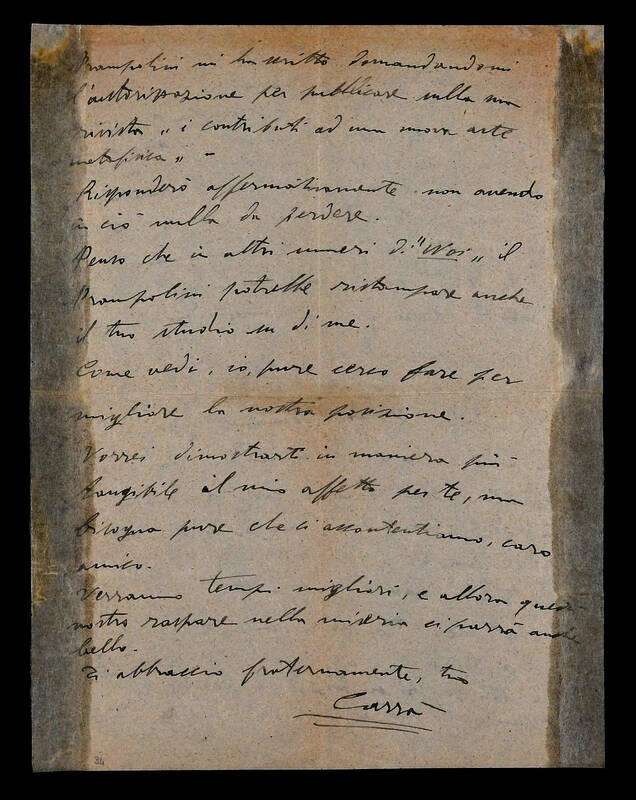 Prampolini mi ha scritto domandandomi
l'autorizzazione per pubblicare sulla sua
rivista „ i contributi ad una nuova arte
metafisica „ –
Risponderò affermativamente non avendo
in ciò nulla da perdere.
Penso che in altri numeri di "Noi„ il
Prampolini potrebbe ristampare anche
il tuo studio su di me.
Come vedi, io, pure cerco fare per
migliore la nostra posizione.
Vorrei dimostrarti in maniera più
tangibile il mio affetto per te, ma
bisogna pure che ci accontentiamo, caro
amico.
Verranno tempi migliori, e allora questo
nostro raspare nella miseria ci parrà anche
bello.
Ti abbraccio fraternamente, tuo
Carrà
34